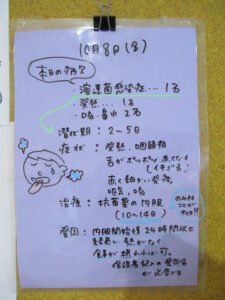 10月8日(金)
本日の病欠
・溶連菌感染症…1名
・発熱…1名
・咳、鼻水 2名
潜伏期：2〜5日
症状：発熱、咽頭痛
舌がブツブツ赤くなり
(イチゴ舌)
赤く細かい発疹、
咳、
治療：抗菌薬の内服
(10〜14日)
のみきる
ことが
大切!!
登園：内服開始後24時間以上
経過し、熱がなく
食事が摂れれば可。
保護者記入の登園届
が必要です